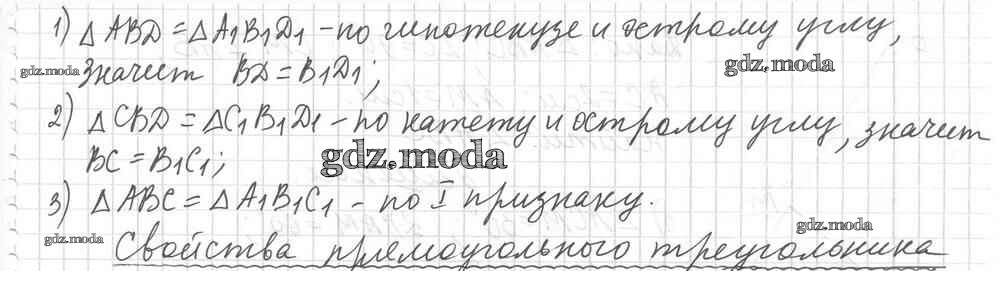 1) △ABD = △A₁B₁D₁ – по гипотенузе и острому углу,
gdz.moda
значит BD = B₁D₁;
gdz.moda
2) △CBD = △C₁B₁D₁ – по катету и острому углу, значит
BC = B₁C₁;
gdz.moda
3) △ABC = △A₁B₁C₁ – по I признаку.
gdz.moda
gdz.moda
Свойства прямоугольного треугольника